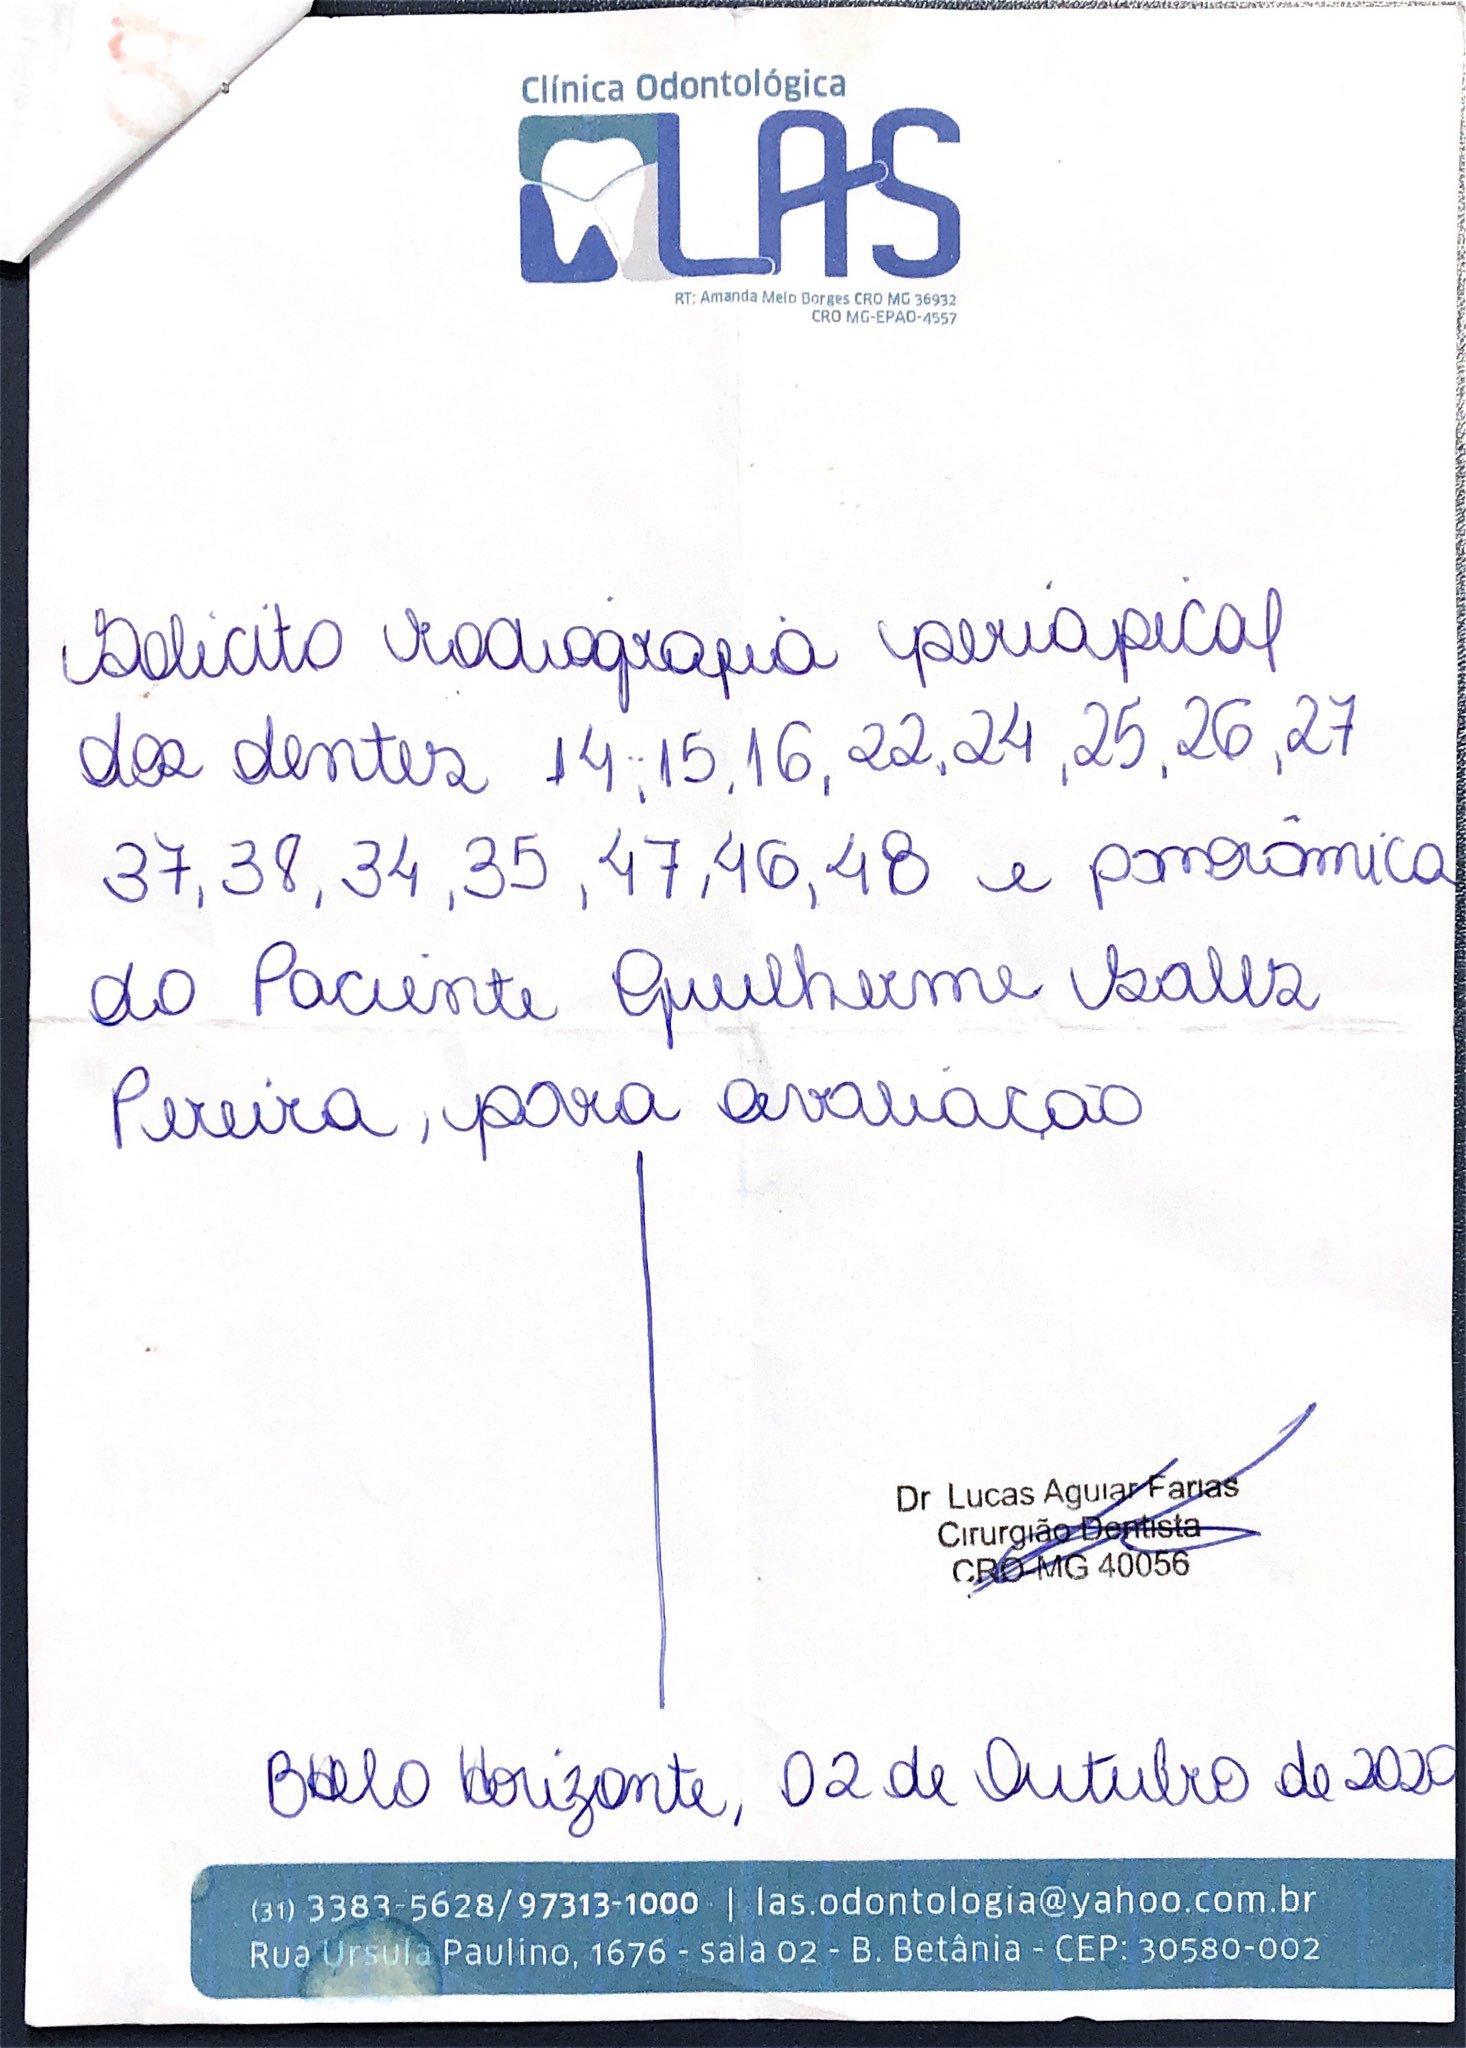 Clínica Odontológica
LAS
RT: Amanda Melo Borges CRO MG 36932
CRO MG-EPAO-4557
Solicito radiografia periapical
dos dentes 14, 15, 16, 22, 24, 25, 26, 27
37, 38, 34, 35, 47, 46, 48 e panorâmica
do Paciente Guilherme Salles
Pereira, para avaliação
Dr Lucas Aguiar Farias
Cirurgião Dentista
CRO-MG 40056
Belo Horizonte, 02 de Outubro de 2020
(31) 3383-5628/97313-1000 | las.odontologia@yahoo.com.br
Rua Ursula Paulino, 1676 - sala 02 - B. Betânia - CEP: 30580-002